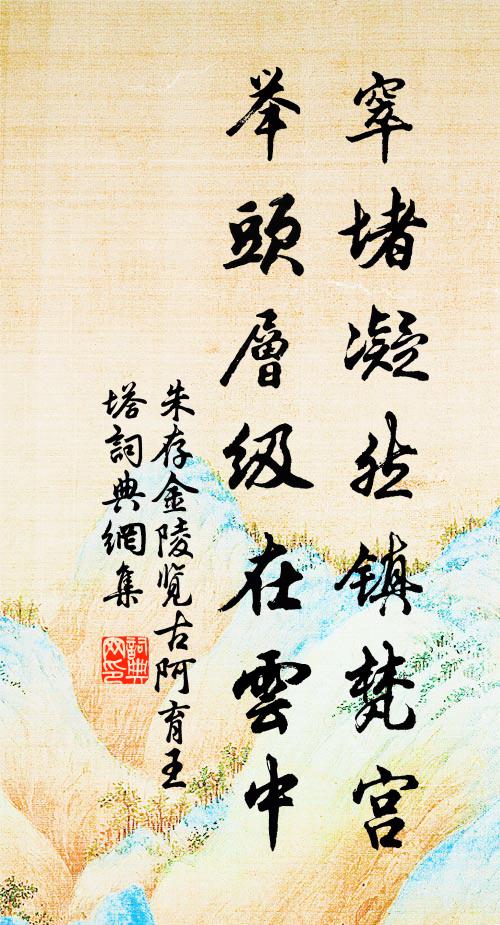 窣堵凝然镇梵宫
举頭層级在雲中
朱存金陵览古阿育王
塔詞典網集
詞典網印